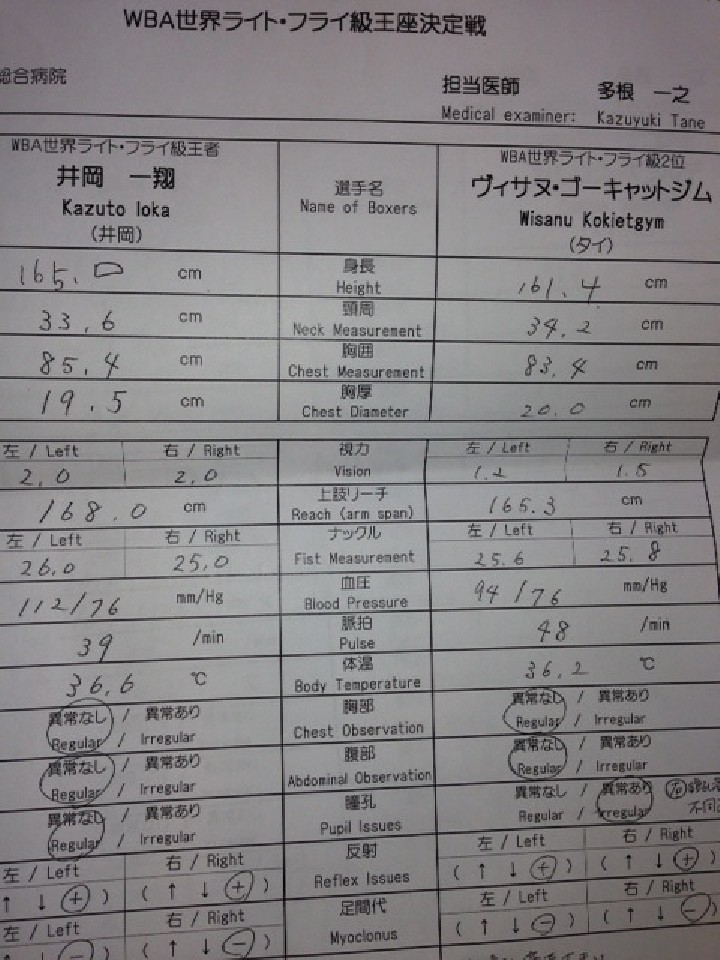 WBA世界ライト・フライ級王座決定戦
総合病院
担当医師 多根 一之
Medical examiner: Kazuyuki Tane
WBA世界ライト・フライ級王者
井岡 一翔
Kazuto Ioka
(井岡)
選手名
Name of Boxers
WBA世界ライト・フライ級2位
ヴィサヌ・ゴーキャットジム
Wisanu Kokietgym
(タイ)
165.0 cm
身長
Height
161.4 cm
33.6 cm
頸周
Neck Measurement
34.2 cm
85.4 cm
胸囲
Chest Measurement
83.4 cm
19.5 cm
胸厚
Chest Diameter
20.0 cm
左 / Left 右 / Right
2.0 2.0
視力
Vision
左 / Left 右 / Right
1.2 1.5
168.0 cm
上肢リーチ
Reach (arm span)
165.3 cm
左 / Left 右 / Right
26.0 25.0
ナックル
Fist Measurement
左 / Left 右 / Right
25.6 25.8
112/76 mm/Hg
血圧
Blood Pressure
94/76 mm/Hg
39 /min
脈拍
Pulse
48 /min
36.6 ℃
体温
Body Temperature
36.2 ℃
異常なし / 異常あり
Regular / Irregular
胸部
Chest Observation
異常なし / 異常あり
Regular / Irregular
異常なし / 異常あり
Regular / Irregular
腹部
Abdominal Observation
異常なし / 異常あり
Regular / Irregular
異常なし / 異常あり
Regular / Irregular
瞳孔
Pupil Issues
異常なし / 異常あり
Regular / Irregular
左 / Left 右 / Right
↑ ↓ + ) ( ↑ ↓ + )
反射
Reflex Issues
左 / Left 右 / Right
( ↑ ↓ + ) ( ↑ ↓ + )
左 / Left 右 / Right
↑ ↓ - ) ( ↑ ↓ - )
足間代
Myoclonus
左 / Left 右 / Right
( ↑ ↓ - ) ( ↑ ↓ - )